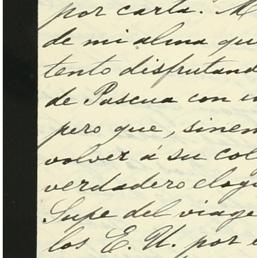 por carta. M
de mi alma qu
tento disfrutand
de Pascua con
pero que, sinem
volver á su col
verdadero elog
Supe del viage
los E. U. por